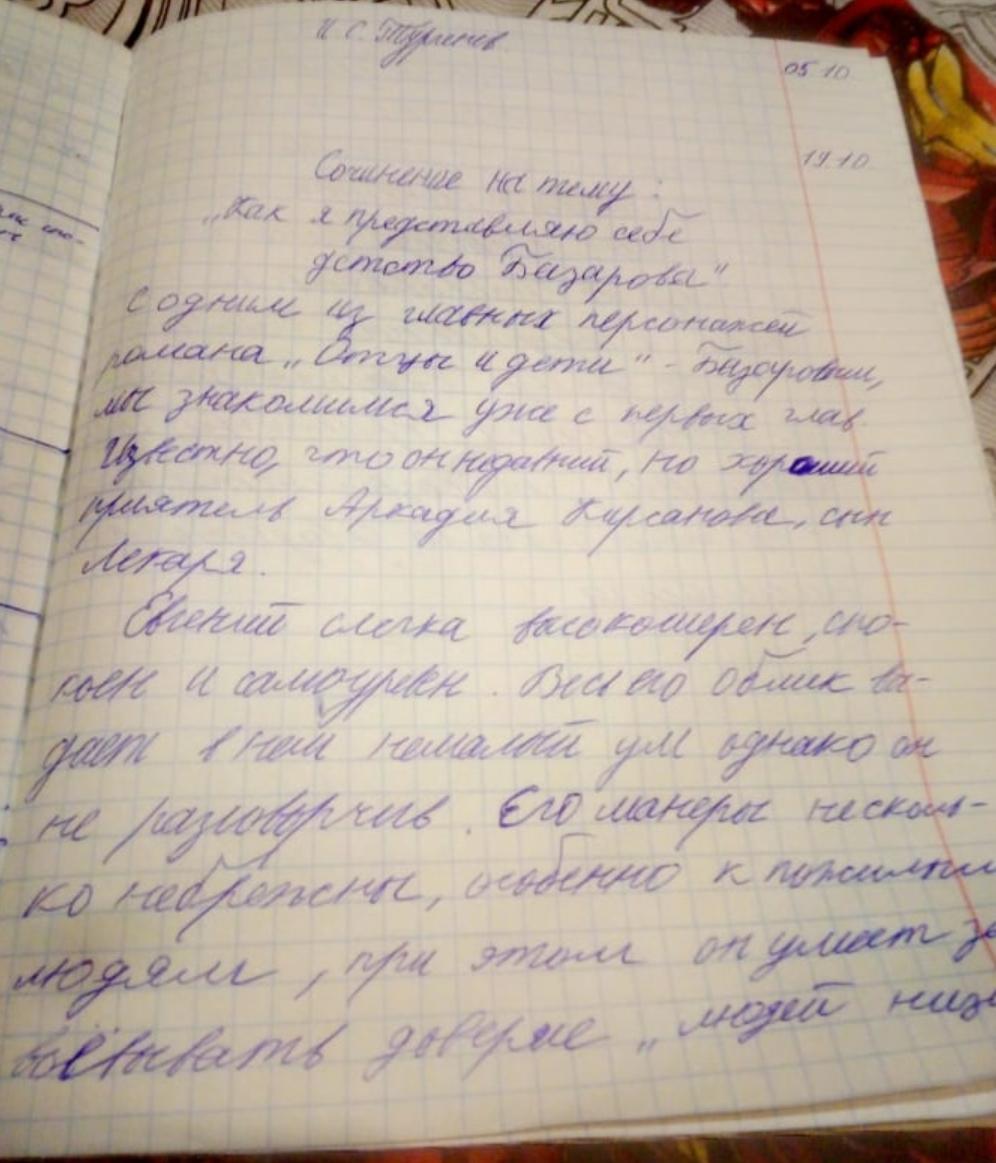 И С. Тургенев
05 10
19.10.
Сочинение на тему:
„Как я представляю себе
детство Базарова"
С одним из главных персонажей
романа „Отцы и дети" - Базаровым,
мы знакомимся уже с первых глав.
Известно, что он недавний, но хороший
приятель Аркадия Кирсанова, сын
Лекаря.
Евгений слегка высокомерен, спо-
коен и самоуверен. Весь его облик вы-
дает в нем немалый ум однако он
не разговорчив. Его манеры несколь-
ко небрежны, особенно к пожилым
людям, при этом он умеет за
воёвывать доверие „людей низ